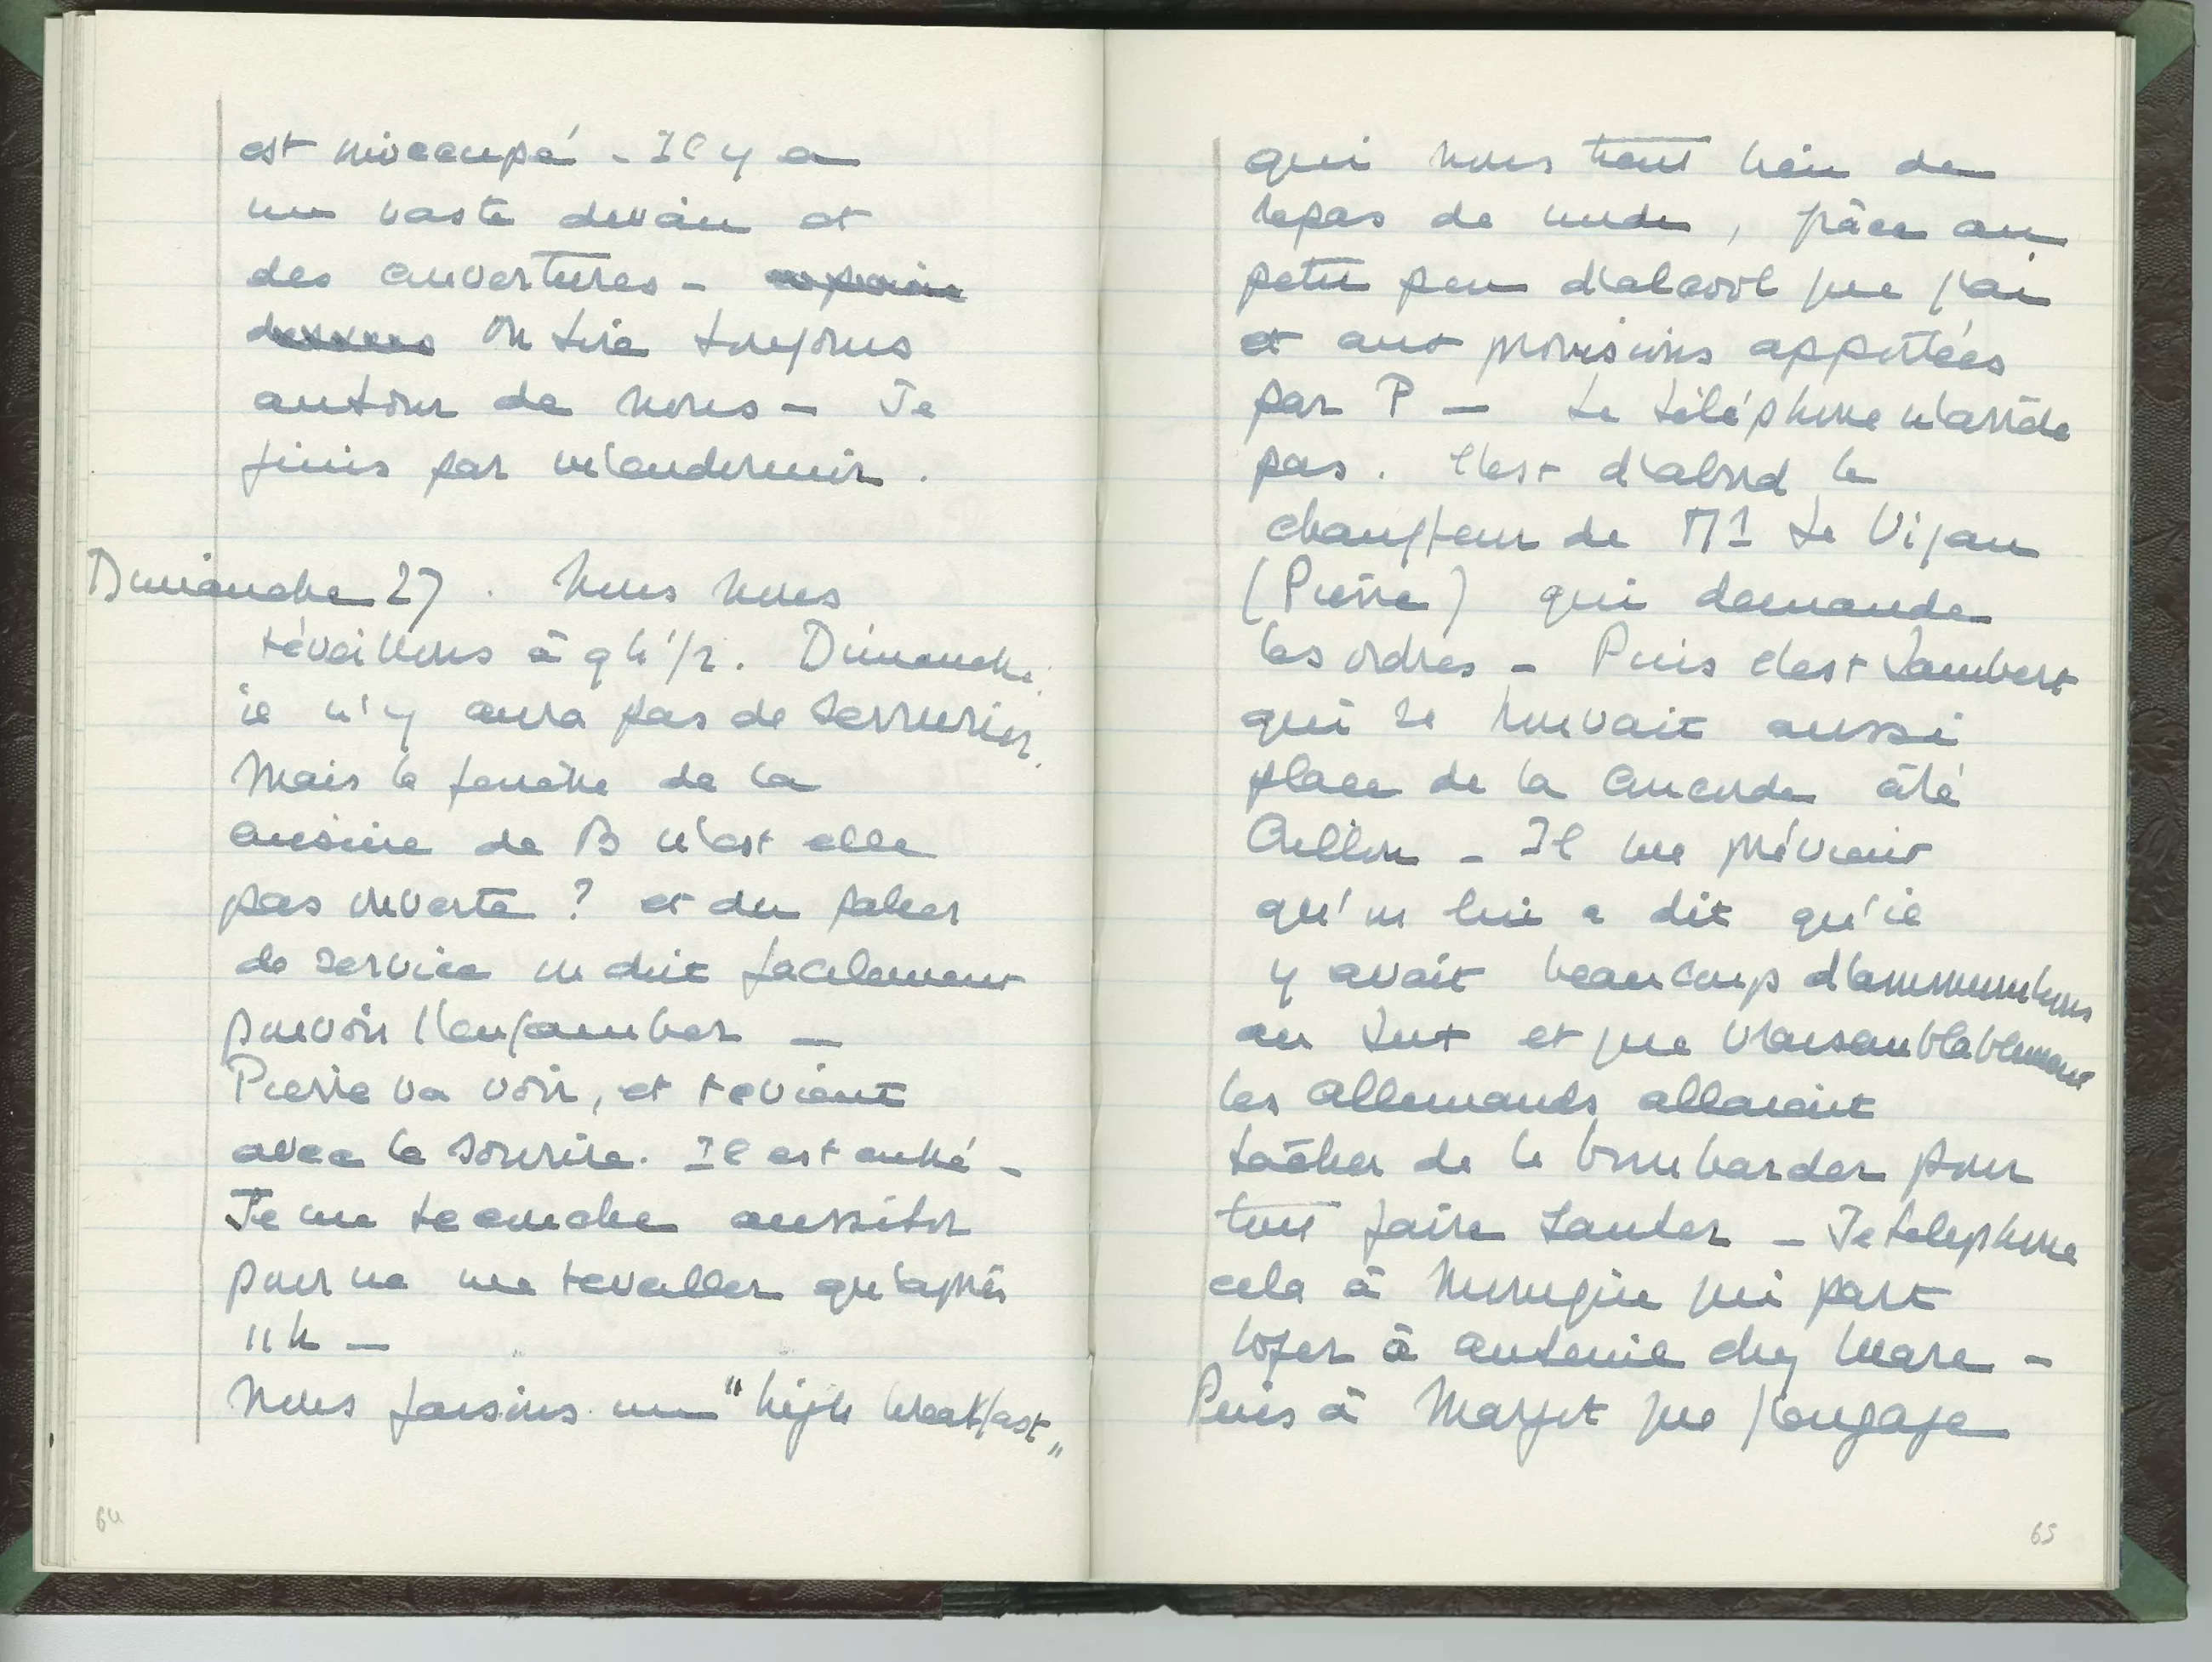 est inoccupé - Il y a
un vaste divan et
des couvertures -
On tire toujours
autour de nous - Je
finis par m'endormir.
Dimanche 27. Nous nous
réveillons à 9h 1/2. Dimanche.
il n'y aura pas de serrurier.
Mais la fenêtre de la
cuisine de B n'est elle
pas ouverte ? et du palier
de service on doit facilement
pouvoir l'enjamber -
Pierre va voir, et revient
avec le sourire. Il est entré -
Je me recouche aussitôt
pour ne me reveiller qu'après
11h -
Nous faisons un "high breakfast"
64
qui nous tient lieu de
repas de midi, grâce au
petit peu d'alcool que j'ai
et aux provisions apportées
par P - Le téléphone n'arrête
pas. C'est d'abord le
chauffeur de Mr Le Vigan
(Pierre) qui demande
les ordres - Puis c'est Lambert
qui se trouvait aussi
place de la Concorde côté
Crillon - Il me prévient
qu'on lui a dit qu'il
y avait beaucoup d'ammunitions
au et que vraisemblablement
les allemands allaient
tâcher de le bombarder pour
tout faire sauter - Je telephone
cela à qui part
loger à Auteuil chez -
Puis à Margot que j'engage
65